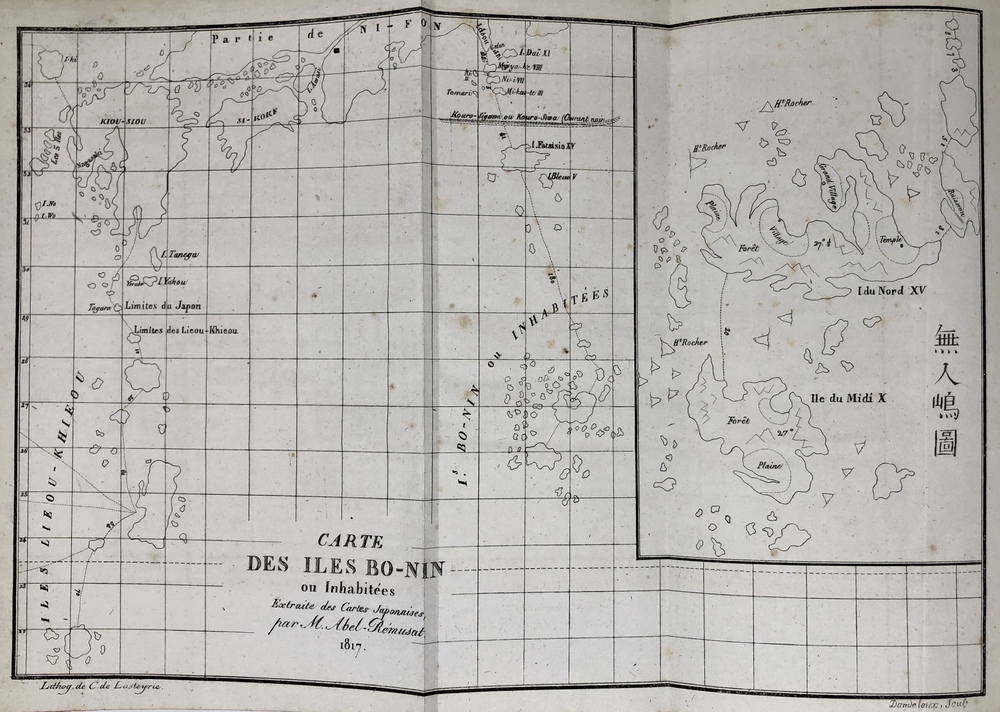 Partie de NI-FON
I. Daï XI
Miya-ke VIII
Nisi VII
Mikou-re III
KIOU-SIOU
SI-KOKF
Kouro-Sigawa ou Kouro-Siwo (Courant noir)
I. Fatsisio XV
I. Bleue V
Nagasaki
I. No
I. Wo
I. Tanega
I. Yakou
Limites du Japon
Limites des Lieou-Khieou
180
Is. BO-NIN ou INHABITÉES
ILES LIEOU-KHIEOU
31
29
28
27
26
25
CARTE
DES ILES BO-NIN
ou Inhabitées
Extraite des Cartes Japonaises,
par M. Abel-Rémusat
1817.
Ht Rocher
Ht Rocher
Grand Village
Plaine
Village
Forêt
27° ½
Temple
I. du Nord XV
20
Ht Rocher
Ile du Midi X
Forêt
27°
Plaine
無人嶋圖
Lithog. de C. de Lasteyrie.